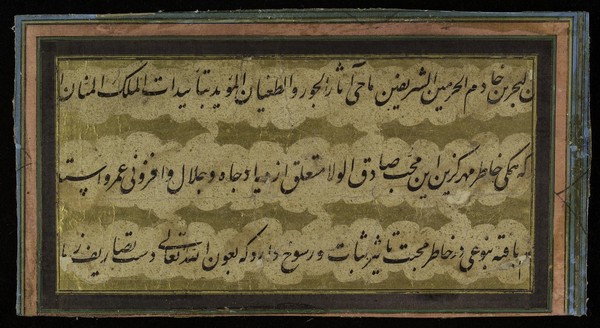 البحرین خادم الحرمین الشریفین ماحی آثار الجور و الطغیان المؤید بتأییدات الملک المنان
که همگی خاطر مهرگزین این محب صادق الولا متعلق ازدیاد جاه و جلال و افزونی عمرو
یافته بنوعی در خاطر محبت تاثیر ثبات و رسوخ دارد که بعون الله تعالی دست تصاریف